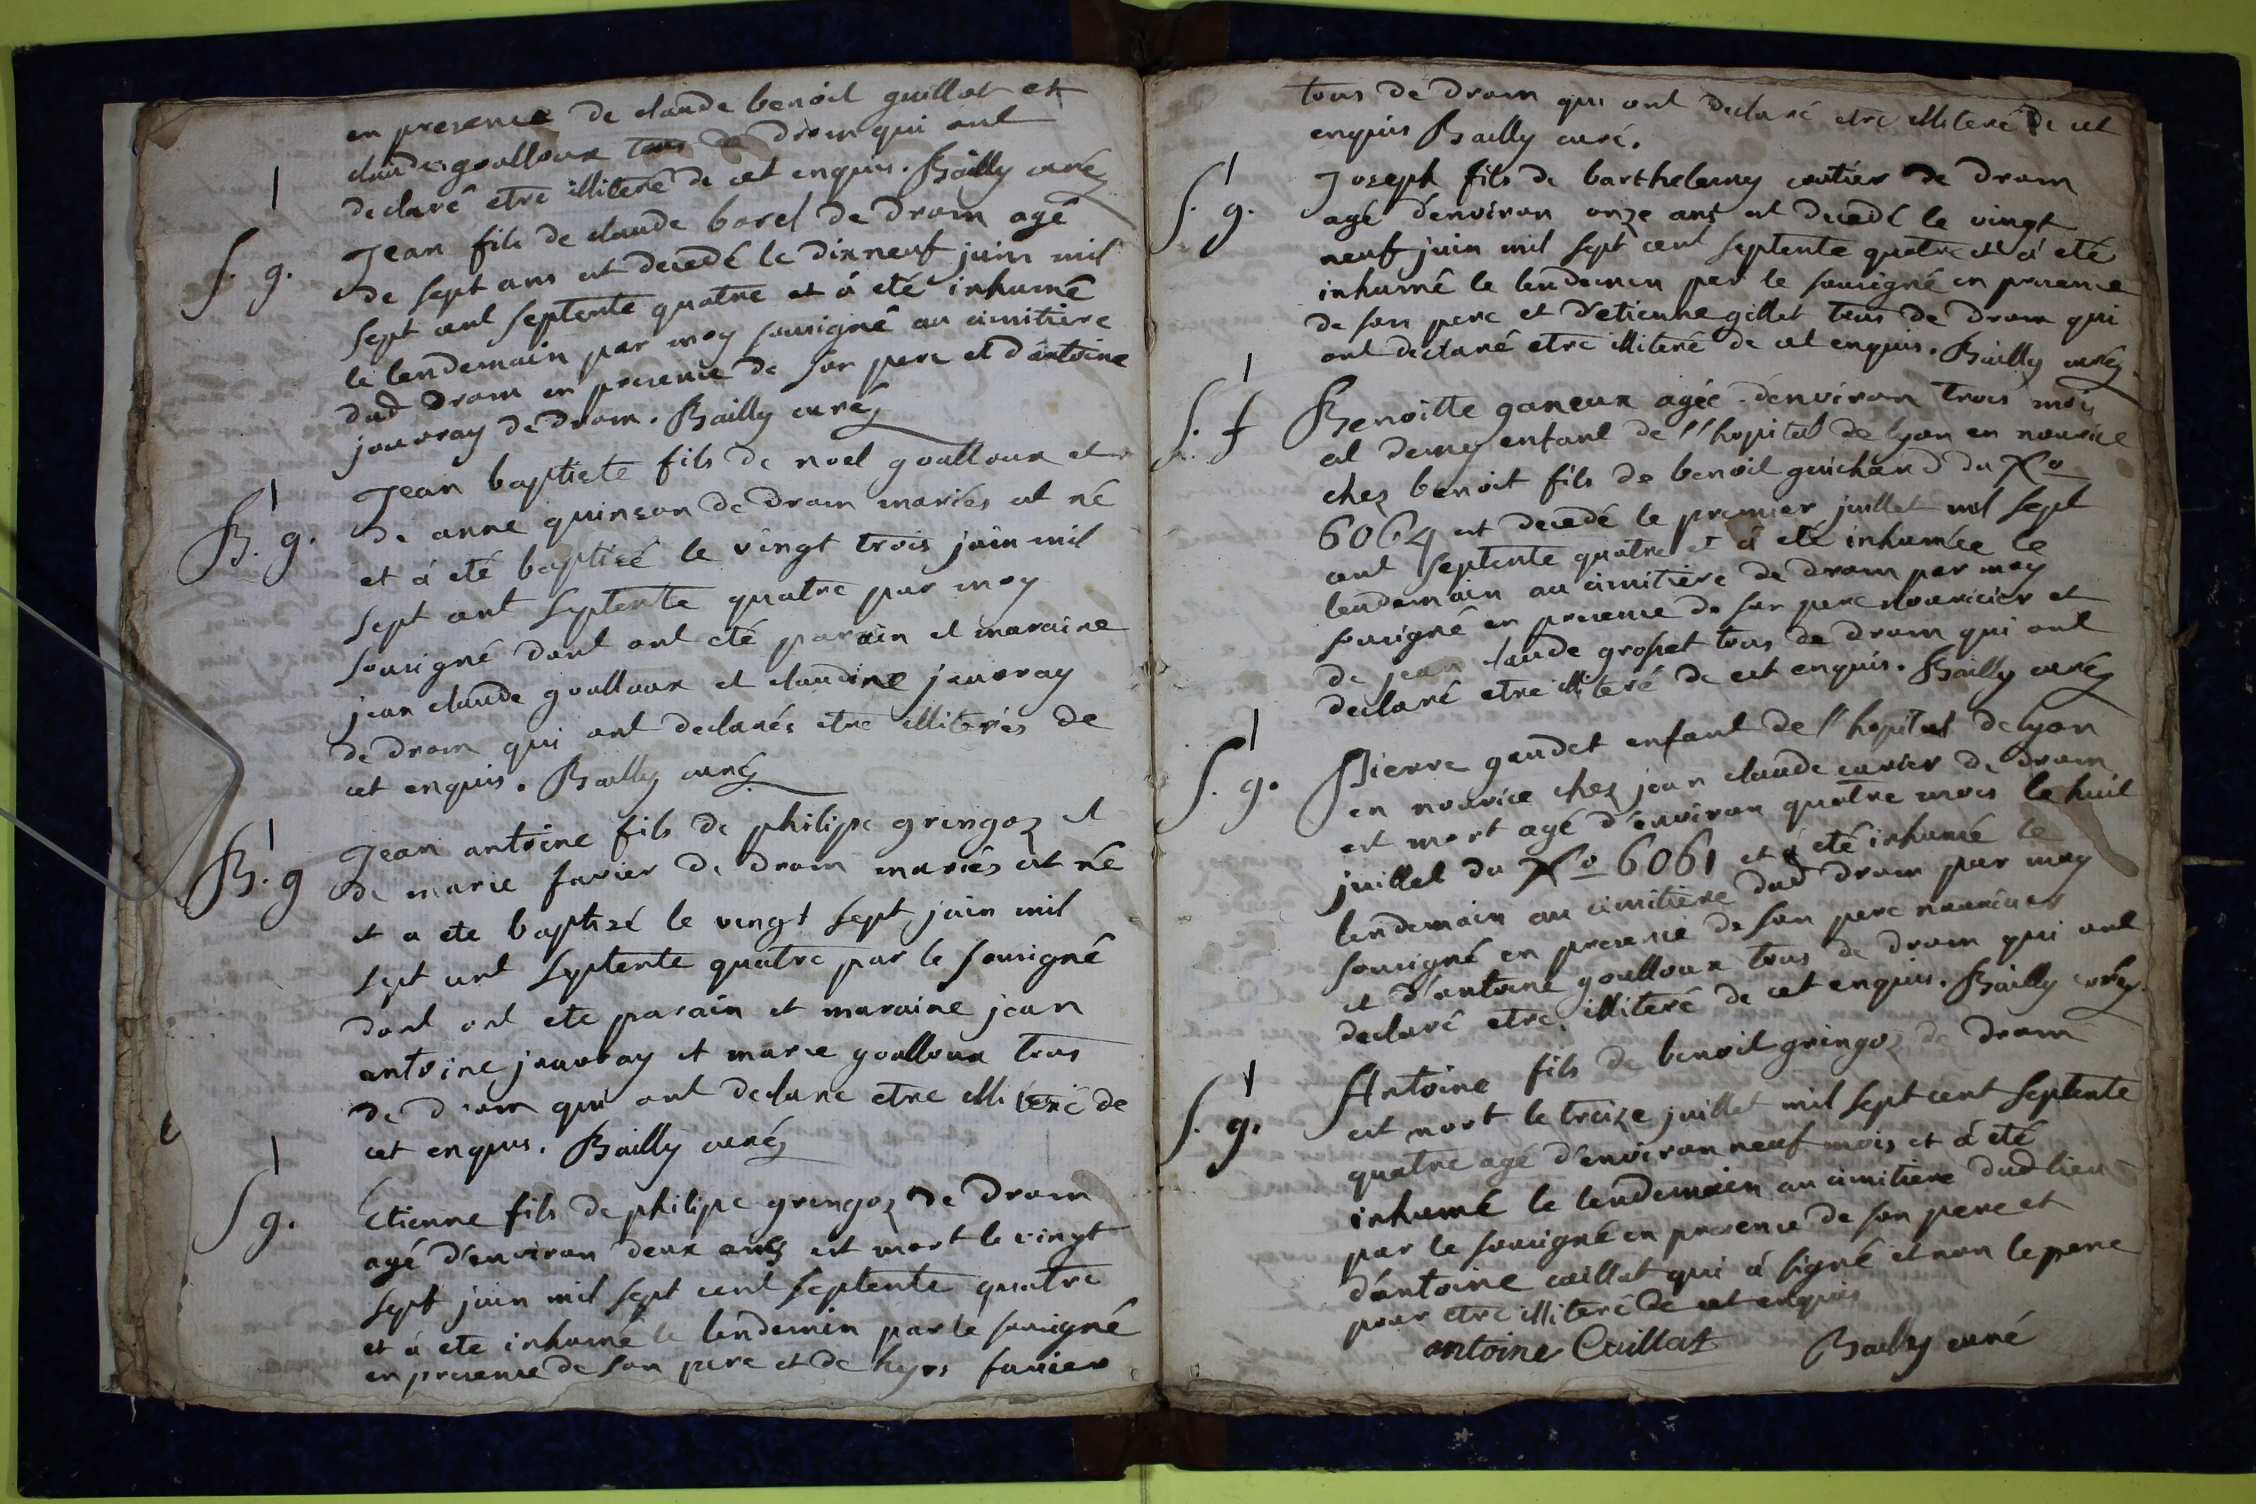 en presence de claude benoit guillot et
claude goulloux tous de drom qui ont
declaré etre illiteré de cet enquis. Bailly curé
S. g. Jean fils de claude borel de drom agé
de sept ans est decedé le dixneuf juin mil
sept cent septente quatre et á eté inhumé
le lendemain par moy sousigné au cimitiere
dud drom en presence de son pere et d'antoine
jouvray de drom. Bailly curé
B. g. Jean baptiste fils de noel goulloux et
de anne quinson de drom mariés est né
et á eté baptisé le vingt trois juin mil
sept cent septente quatre par moy
sousigné dont ont eté parain et maraine
jean claude goulloux et claudine jouvray
de drom qui ont declarés etre illiterés de
cet enquis. Bailly curé
B. g Jean antoine fils de philipe gringoz et
de marie favier de drom mariés est né
et a ete baptizé le vingt sept juin mil
sept cent septente quatre par le sousigné
dont ont ete parain et maraine jean
antoine jouvray et marie goulloux tous
de drom qui ont declaré etre illiteré de
cet enquis. Bailly curé
S g. Etienne fils de philipe gringoz de drom
agé d'environ deux ans est mort le vingt
sept juin mil sept cent septente quatre
et á ete inhumé le lendemin par le sousigné
en presence de son pere et de favier
tous de drom qui ont declaré etre illiteré de cet
enquis Bailly curé.
S. g. Joseph fils de barthelemy cortier de drom
agé d'environ onze ans est decedé le vingt
neuf juin mil sept cent septente quatre et á eté
inhumé le lendemin par le sousigné en presence
de son pere et d'etienne gillet tous de drom qui
ont declaré etre illiteré de cet enquis. Bailly curé
S. f Benoitte ganeux agée d'environ trois mois
et demy enfant de l'hopital de lyon en nourice
chez benoit fils de benoit guichand du No
6064 est decedé le premier juillet mil sept
cent septente quatre et á eté inhumée le
lendemain au cimitiere de drom par moy
sousigné en presence de son pere nouricier et
de jean claude groset tous de drom qui ont
declaré etre illiteré de cet enquis. Bailly curé
S. g. Pierre gaudet enfant de l'hopital de lyon
en nourice chez jean claude carter de drom
est mort agé d'environ quatre mois le huit
juillet du No 6061 et á eté inhumé le
lendemain au cimitiere dud drom par moy
sousigné en presence de son pere nouricier
et d'antoine goulloux tous de drom qui ont
declaré etre illiteré de cet enquis. Bailly curé
S. g. Antoine fils de benoit gringoz de drom
est mort le treize juillet mil sept cent septente
quatre agé d'environ neuf mois et á eté
inhumé le lendemain au cimitiere dud lieu
par le sousigné en presence de son pere et
d'antoine caillat qui á signé et non le pere
pour etre illiteré de cet enquis
antoine Caillat Bailly curé